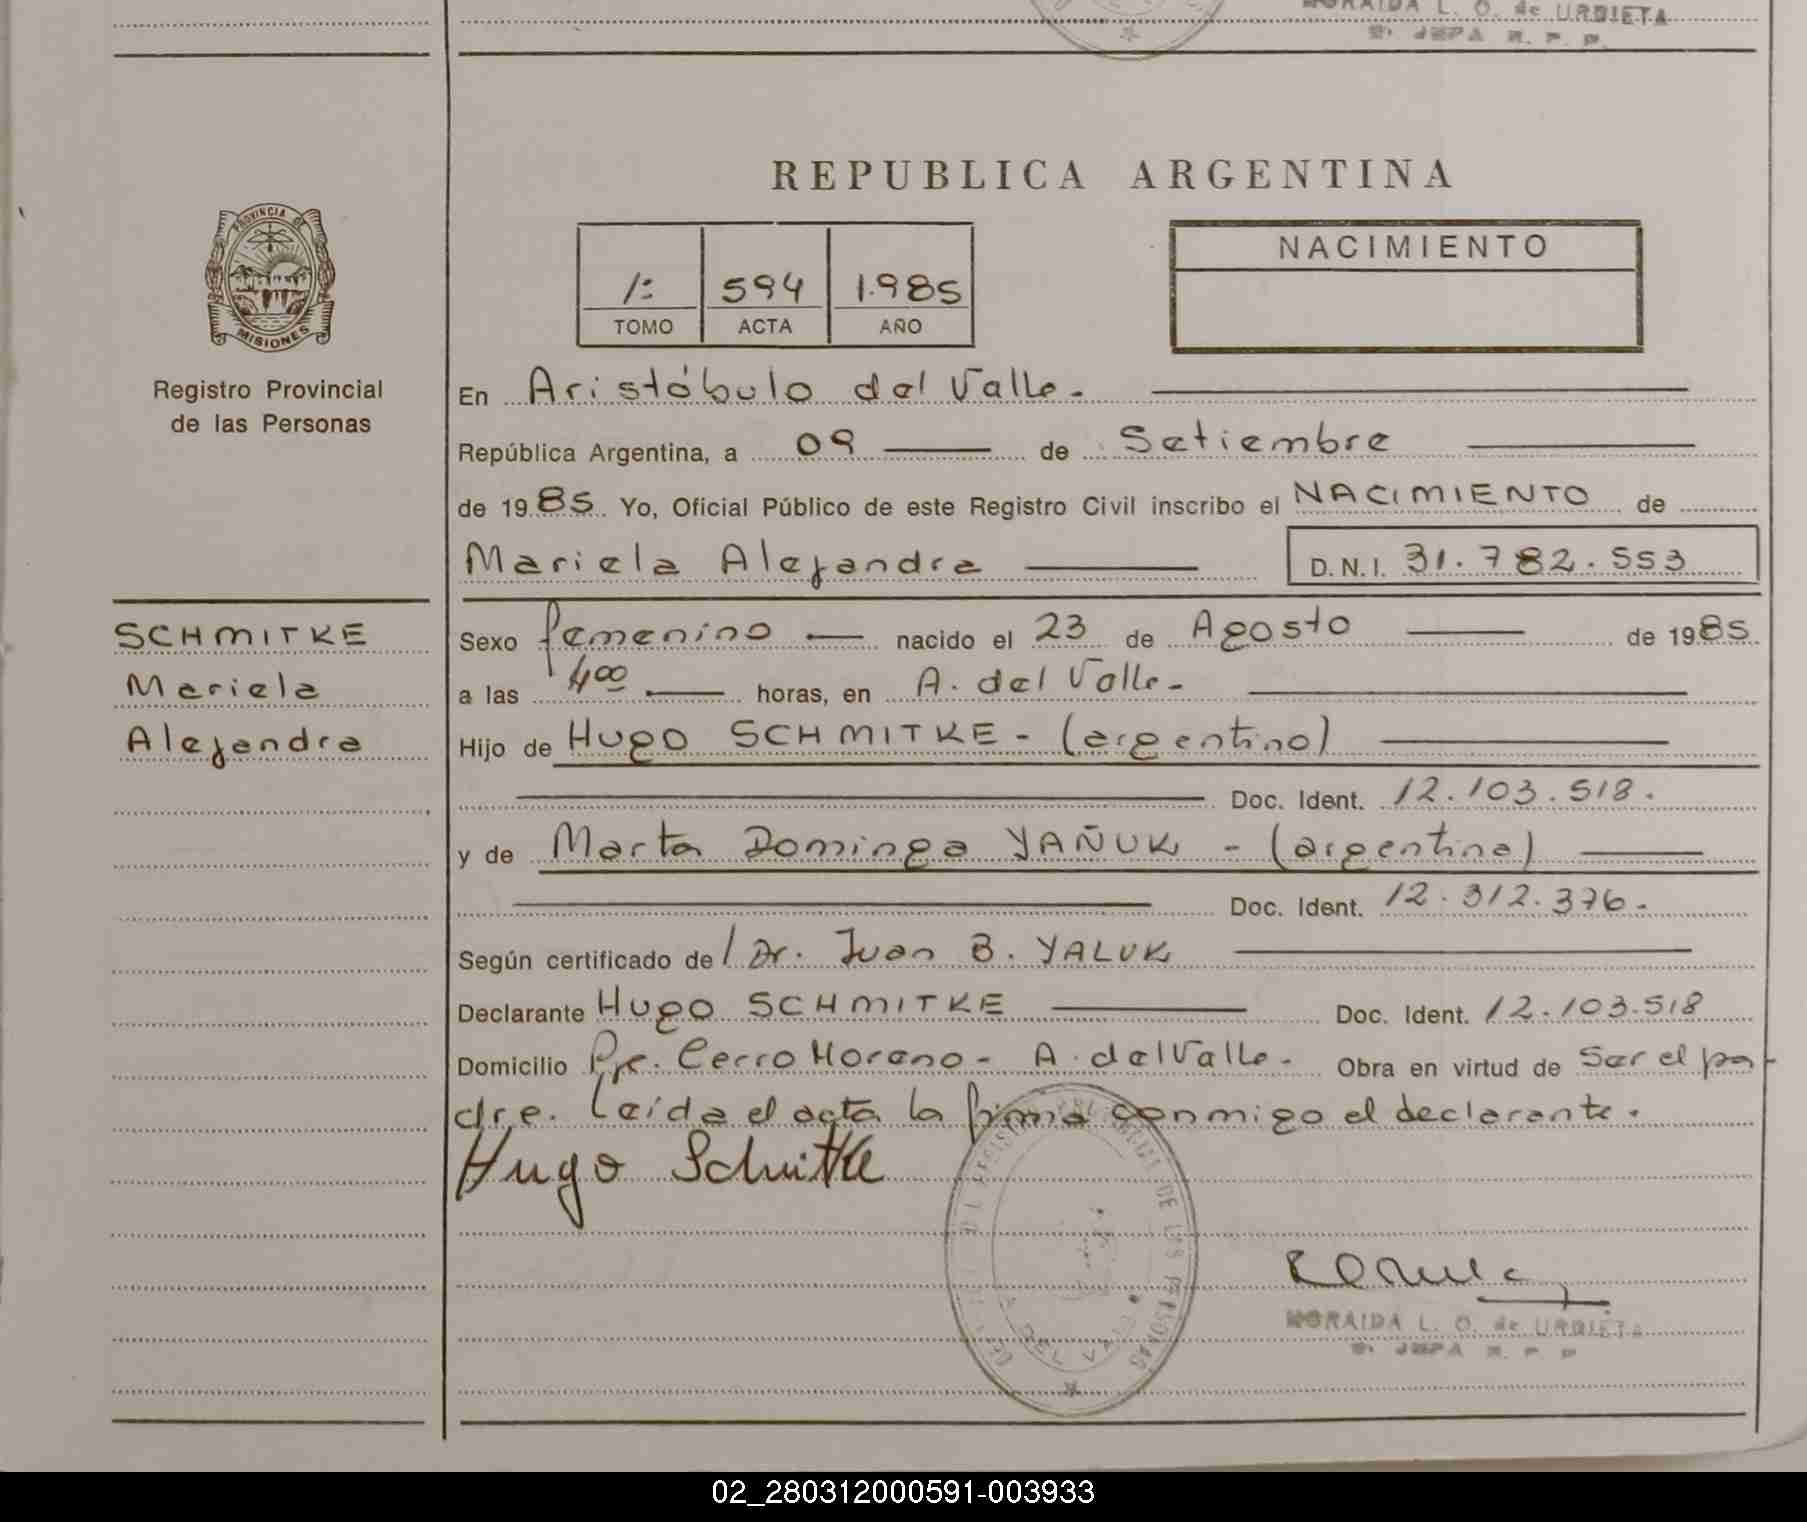 MORAIDA L. O. de URBIETA
JEFA R. P. P.
REPUBLICA ARGENTINA
PROVINCIA DE
MISIONES
Registro Provincial
de las Personas
1: 594 1.985
TOMO ACTA AÑO
NACIMIENTO
En Aristóbulo del Valle.
República Argentina, a 09 de Setiembre
de 1985 Yo, Oficial Público de este Registro Civil inscribo el NACIMIENTO de
Mariela Alejandra D.N.I. 31.782.553
SCHMITKE
Mariela
Alejandra
Sexo femenino nacido el 23 de Agosto de 1985
a las 4 00 horas, en A. del Valle-
Hijo de Hugo SCHMITKE - (argentino)
Doc. Ident. 12.103.518.
y de Marta Dominga YAÑUK - (argentina)
Doc. Ident. 12.312.376.
Según certificado de / Dr. Juan B. YALUK
Declarante Hugo SCHMITKE Doc. Ident. 12.103.518
Domicilio Pje. Cerro Moreno - A. del Valle. Obra en virtud de Ser el pa-
dre. Leída el acta la firma conmigo el declarante.
Hugo Schmitke
DE LAS PERSONAS
DEL VALLE
MORAIDA L. O. de URBIETA
JEFA R. P. P.
02_280312000591-003933